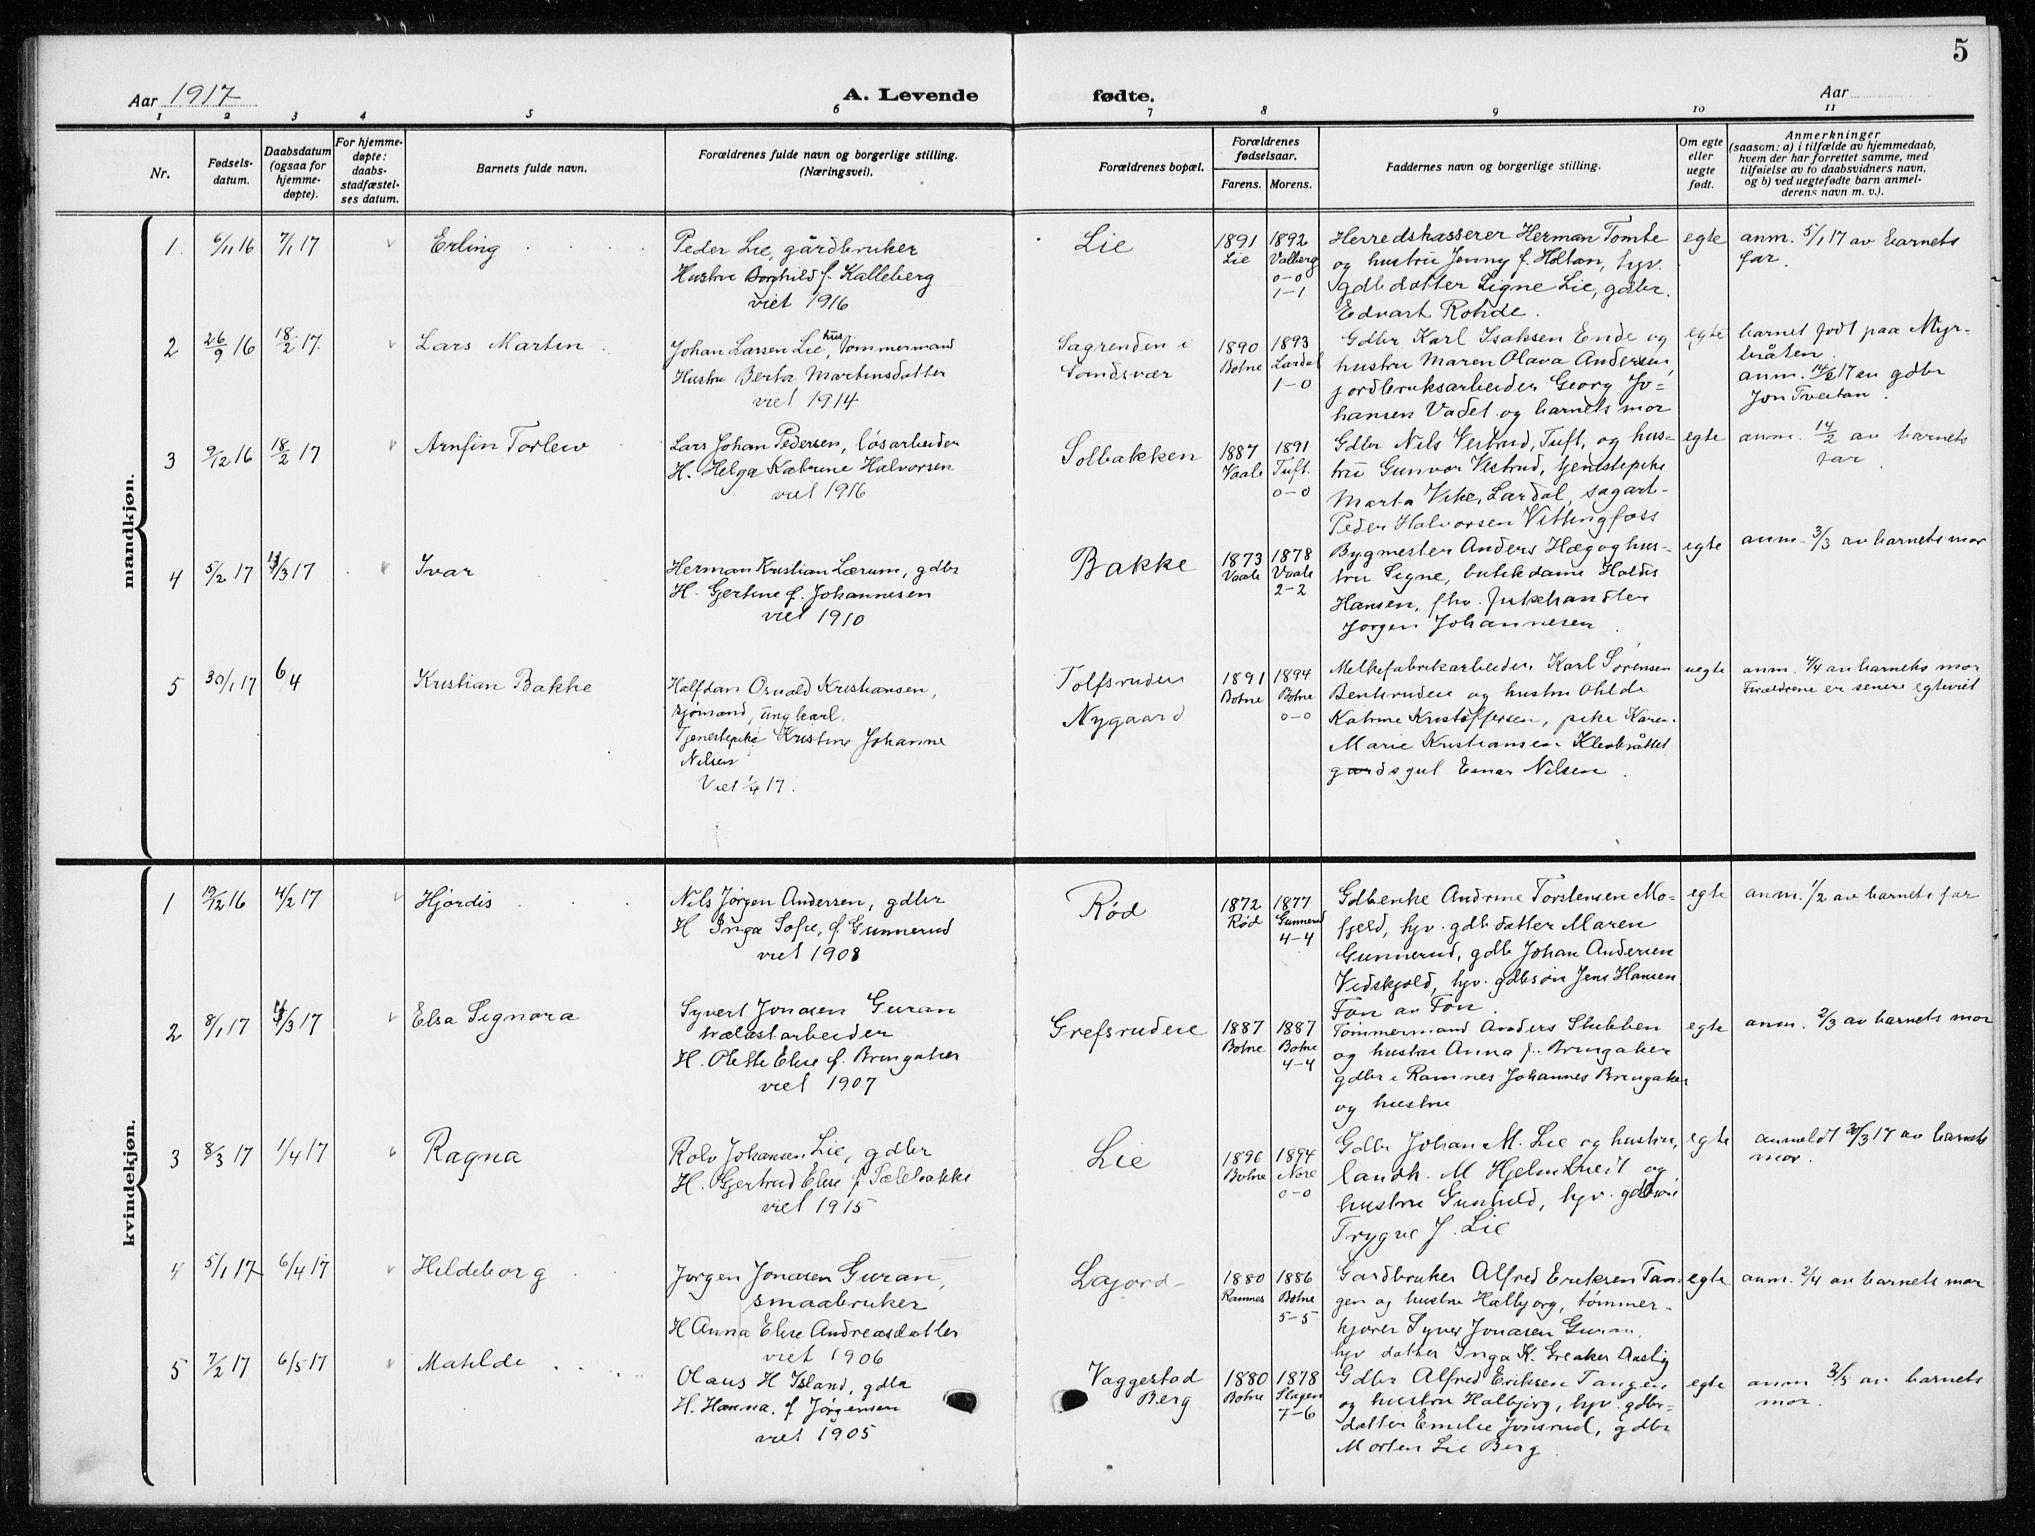 5
Aar 1917
A. Levende
fødte.
Aar
1 2 3 4 5 6 7 8 9 10 11
Nr.
Fødsels-
datum.
Daabsdatum
(ogsaa for
hjemme-
døpte).
For hjemme-
døpte:
daabs-
stadfæstel-
ses datum.
Barnets fulde navn.
Forældrenes fulde navn og borgerlige stilling.
(Næringsvei).
Forældrenes bopæl.
Forældrenes
fødselsaar.
Farens. Morens.
Faddernes navn og borgerlige stilling.
Om egte
eller
uegte
født.
Anmerkninger
(saasom: a) i tilfælde av hjemmedaab,
hvem der har forrettet samme, med
tilføielse av to daabsvidners navn,
og b) ved uegtefødte barn anmel-
derens navn m. v.).
mandkjøn.
1 6/11 16 7/1 17 Erling
Peder Lie, gårdbruker
Hustru Borghild f. Kalleberg
viet 1916
Lie
1891
Lie
1892
Valberg
0-0
1-1
Herredskasserer Herman Tomte
og hustru Jenny f. Holtan, hjv.
gdb datter Signe Lie, gdbr.
Edvart Rohde.
egte
anm. 5/1 17 av barnets
far.
2 26/9 16 18/2 17 Lars Martin
Johan Larsen Lie, hus Tømmermand
Hustru Berta Martinsdatter
viet 1914
Sagrenden i
Sandsvær
1890
Botne
1893
Lardal
1-0
Gdbr Karl Isaksen Ende og
hustru Maren Olava Andersen,
jordbruksarbeider Georg Jo=
hansen Vadet og barnets mor
egte
barnet født paa Myr-
bråten.
anm. 14/2 17 av gdbr
Jon Tveitan.
3 9/12 16 18/2 17 Arnfin Torleiv
Lars Johan Pedersen, løsarbeider
H. Helga Katrine Halvorsen
viet 1916
Solbakken
1887
Vaale
1891
Tuft.
0-0
Gdbr Nils Vestrud, Tuft, og hus-
tru Gunvor Vestrud, tjenstepike
Marta Vike, Lardal, sagarb-
Peder Halvorsen Vittingfoss
egte
anm. 14/2 av barnets
far.
4 5/2 17 /3 17 Ivar
Herman Kristian Lærum, gdbr
H. Gjertine f. Johannesen
viet 1910
Bakke
1873
Vaale
1878
Vaale
2-2
Bygmester Anders Hæg og hus-
tru Signe, butikdame Haldis
Hansen, fhv. Jukehandler
Jørgen Johannesen.
egte
anm. 3/3 av barnets mor
5 30/1 17 6/4 Kristian Bakke
Halfdan Osvald Kristiansen,
sjømand, ungkarl.
Tjenestepike Kristine Johanne
Nilsen
Viet 1/4 17.
Tolfsruden
Nygaard
1891
Botne
1894
Botne
0-0
Melkefabrikarbeider Karl Sørensen
Bentsruden og hustru
Katrine Kristoffersen, pike Karen
Marie Kristiansen Klevbråttet
gårdsgut Einar Nilsen.
uegte
anm. 4/4 av barnets mor
Forældrene er senere egteviet
kvindekjøn.
1 19/12 16 4/2 17 Hjørdis
Nils Jørgen Andersen, gdbr
H Inga Sofie, f. Gunnerud
viet 1908
Rød
1872
Rød
1877
Gunnerud
4-4
Gdbenke Andrine Torstensen Mo-
fjeld, hjv. gdb datter Maren
Gunnerud, gdb Johan Andersen
Vidskjold, hjv. gdbsøn Jens Hansen
Fon av Fon.
egte
anm. 1/2 av barnets far
2 8/1 17 /3 17 Elsa Signora
Syvert Jonasen Guran
trælastarbeider
H. Olette Elise f Bringaker
viet 1907
Grefsrudeie
1887
Botne
1887
Botne
4-4
Tømmermand Anders Stubben
og hustru Anna f. Bringaker
gdbr i Ramnes Johannes Bringaker
og hustru
egte
anm. 2/3 av barnets mor
3 8/3 17 1/4 17 Ragna
Rolv Johansen Lie, gdbr
H. Gjertrud Elise f Sælebakke
viet 1915
Lie
1896
Botne
1894
Nore
0-0
Gdbr Johan M. Lie og hustru,
landh. M Hjelmtveit og
hustru Gunhild, hjv. gdbsøn
Trygve J. Lie
egte
anmeldt 30/3 17 av barnets
mor.
4 5/1 17 6/4 17 Hildeborg
Jørgen Jonasen Guran,
smaabruker
H Anna Elise Andreasdatter
viet 1906
Lajord
1880
Ramnes
1886
Botne
5-5
Gardbruker Alfred Eriksen Tan-
gen og hustru Halbjorg, tømmer-
kjører Syver Jonasen Guran,
hjv datter Inga K. Greaker Aaslig
egte
anm. 2/4 av barnets mor
5 7/2 17 6/5 17 Matilde
Olaus H Island, gdbr
H. Hanna. f Jørgensen
viet 1905
Vaggestad
Berg
1880
Botne
1878
Slagen
7-6
Gdbr Alfred Eriksen Tangen
og hustru Halbjørg, hjv. gdbr-
datter Emilie Jonsrud, gdbr
Morten Lie Berg
egte
anm /5 av barnets
mor.